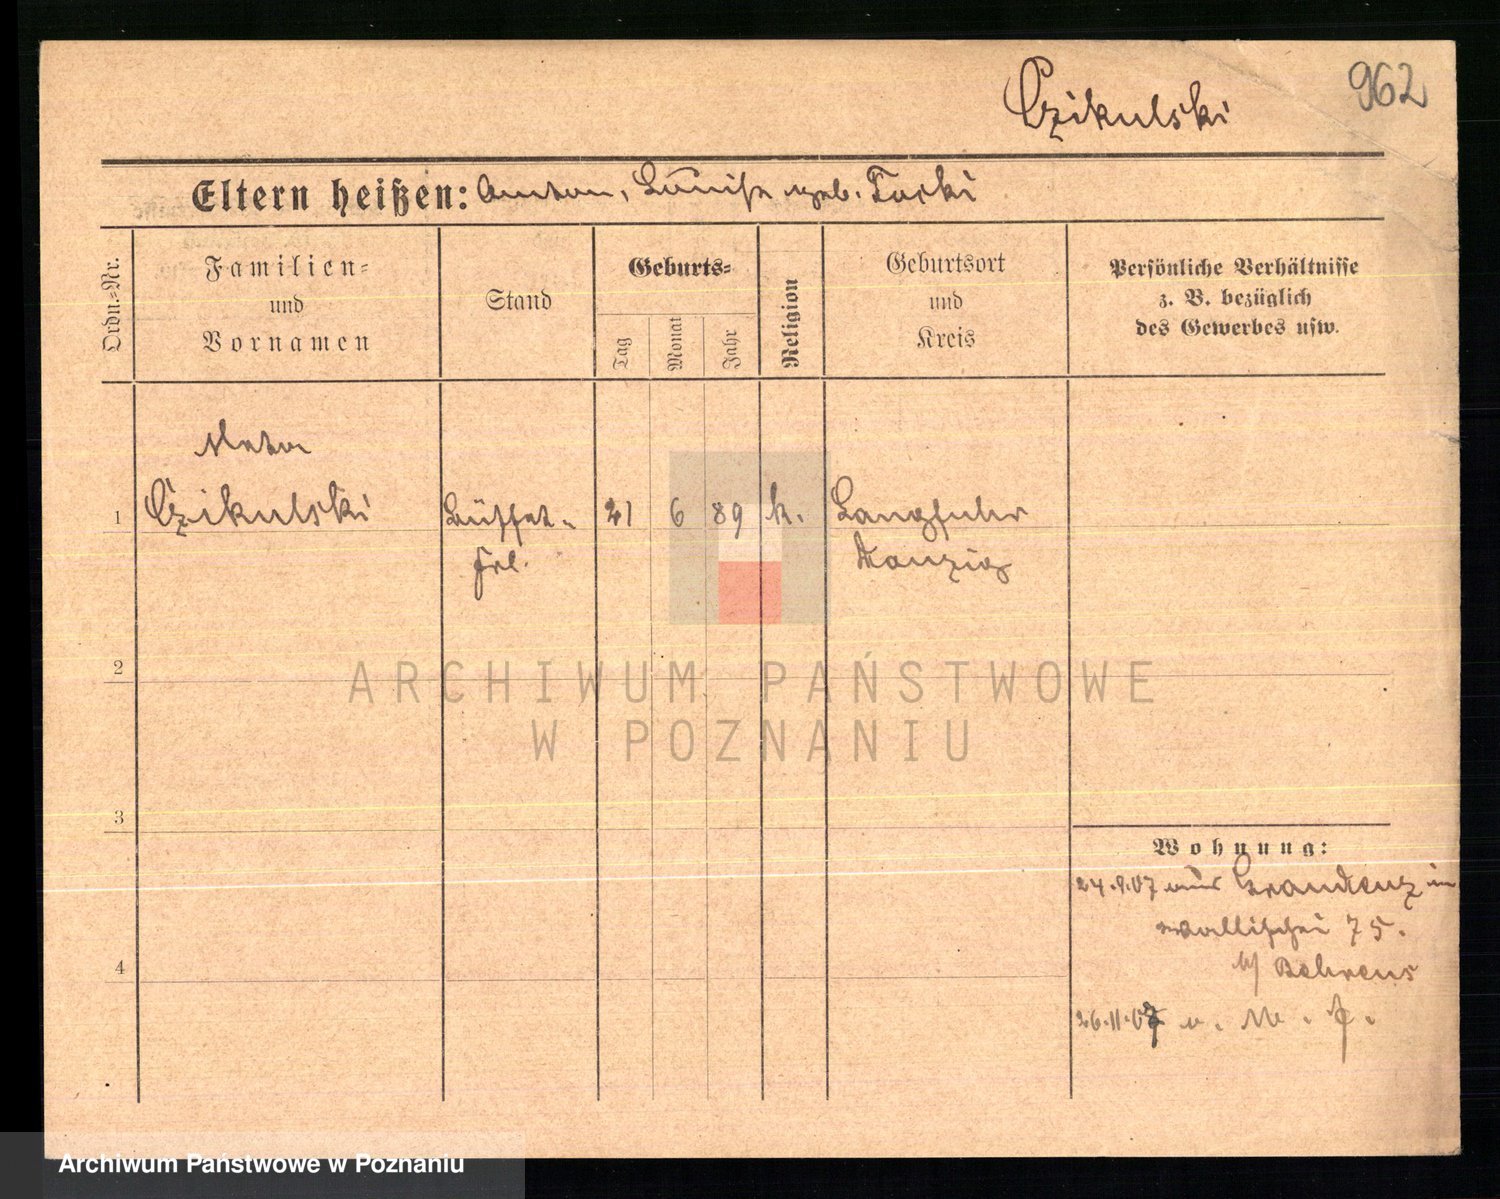 Czikulski
962
Eltern heißen: Anton, Luise geb. Torki
Ordn.=Nr.
Familien=
und
Vornamen
Stand
Geburts=
Tag
Monat
Jahr
Religion
Geburtsort
und
Kreis
Persönliche Verhältnisse
z. B. bezüglich
des Gewerbes usw.
Meta
1 Czikulski Büffet- 21 6 89 k. Langfuhr
Frl. Danzig
2
ARCHIWUM PAŃSTWOWE
W POZNANIU
3
Wohnung:
24.9.07 aus Graudenz in
Wallischei 75.
b/ Behrens
4
26.11.07
Archiwum Państwowe w Poznaniu